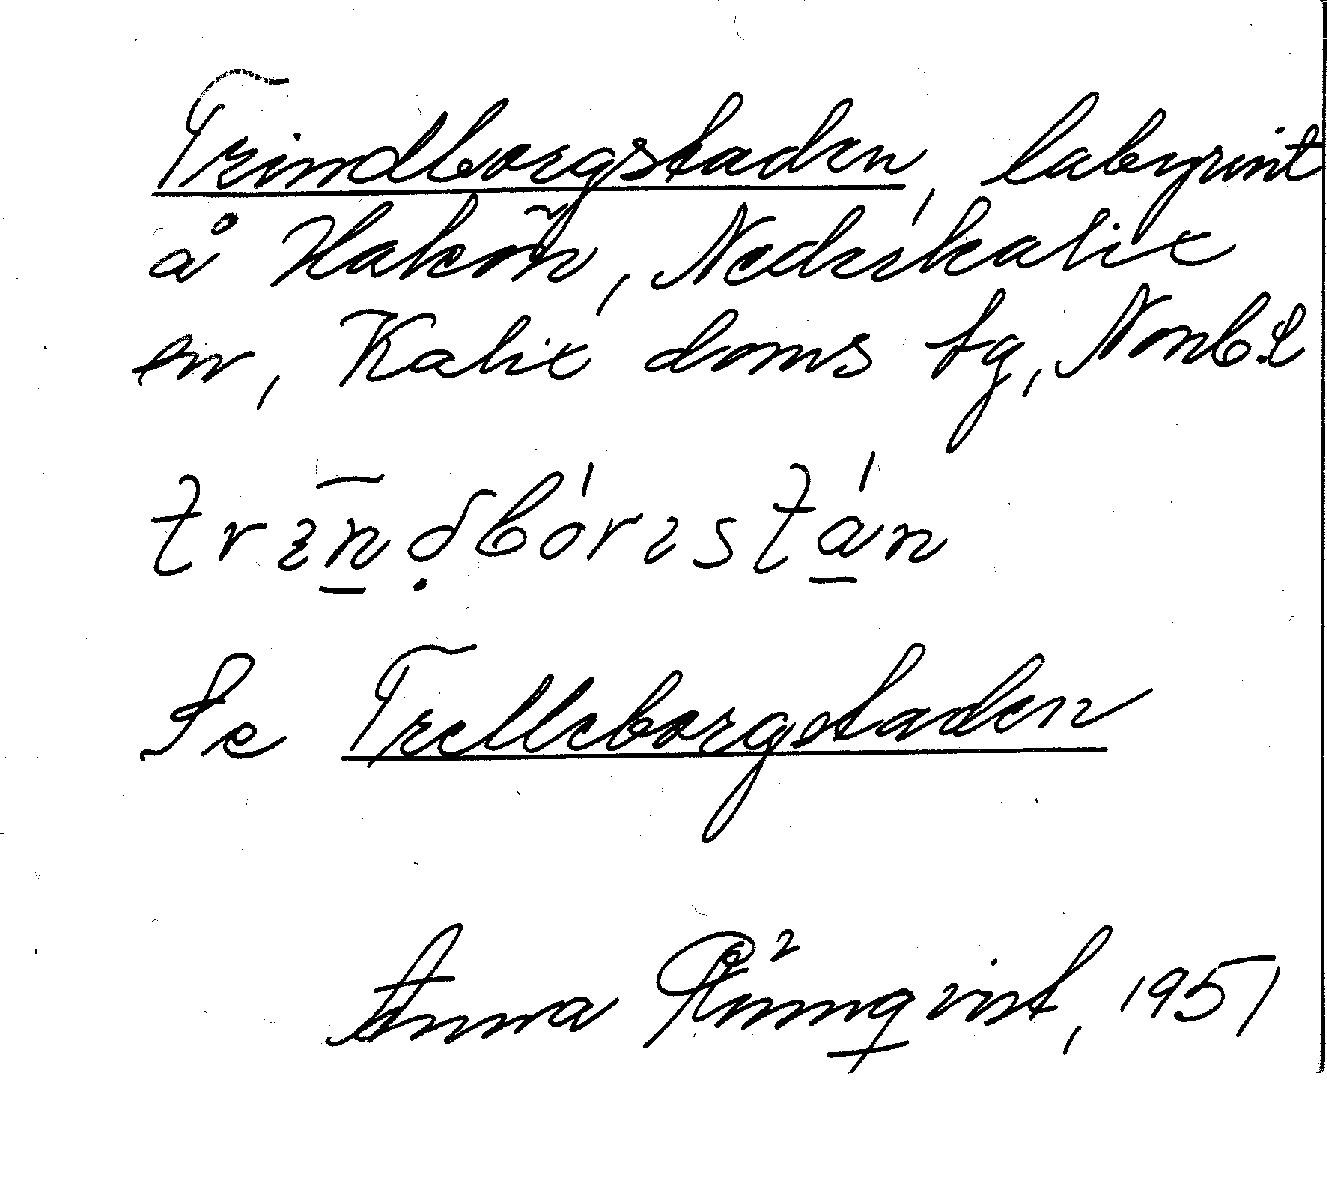 Trindborgstaden, labyrint
å Halsön, Nederkalix
sn, Kalix doms tg, Nonb L
Se Trelleborgstaden
Anna Rönnqvist, 1951